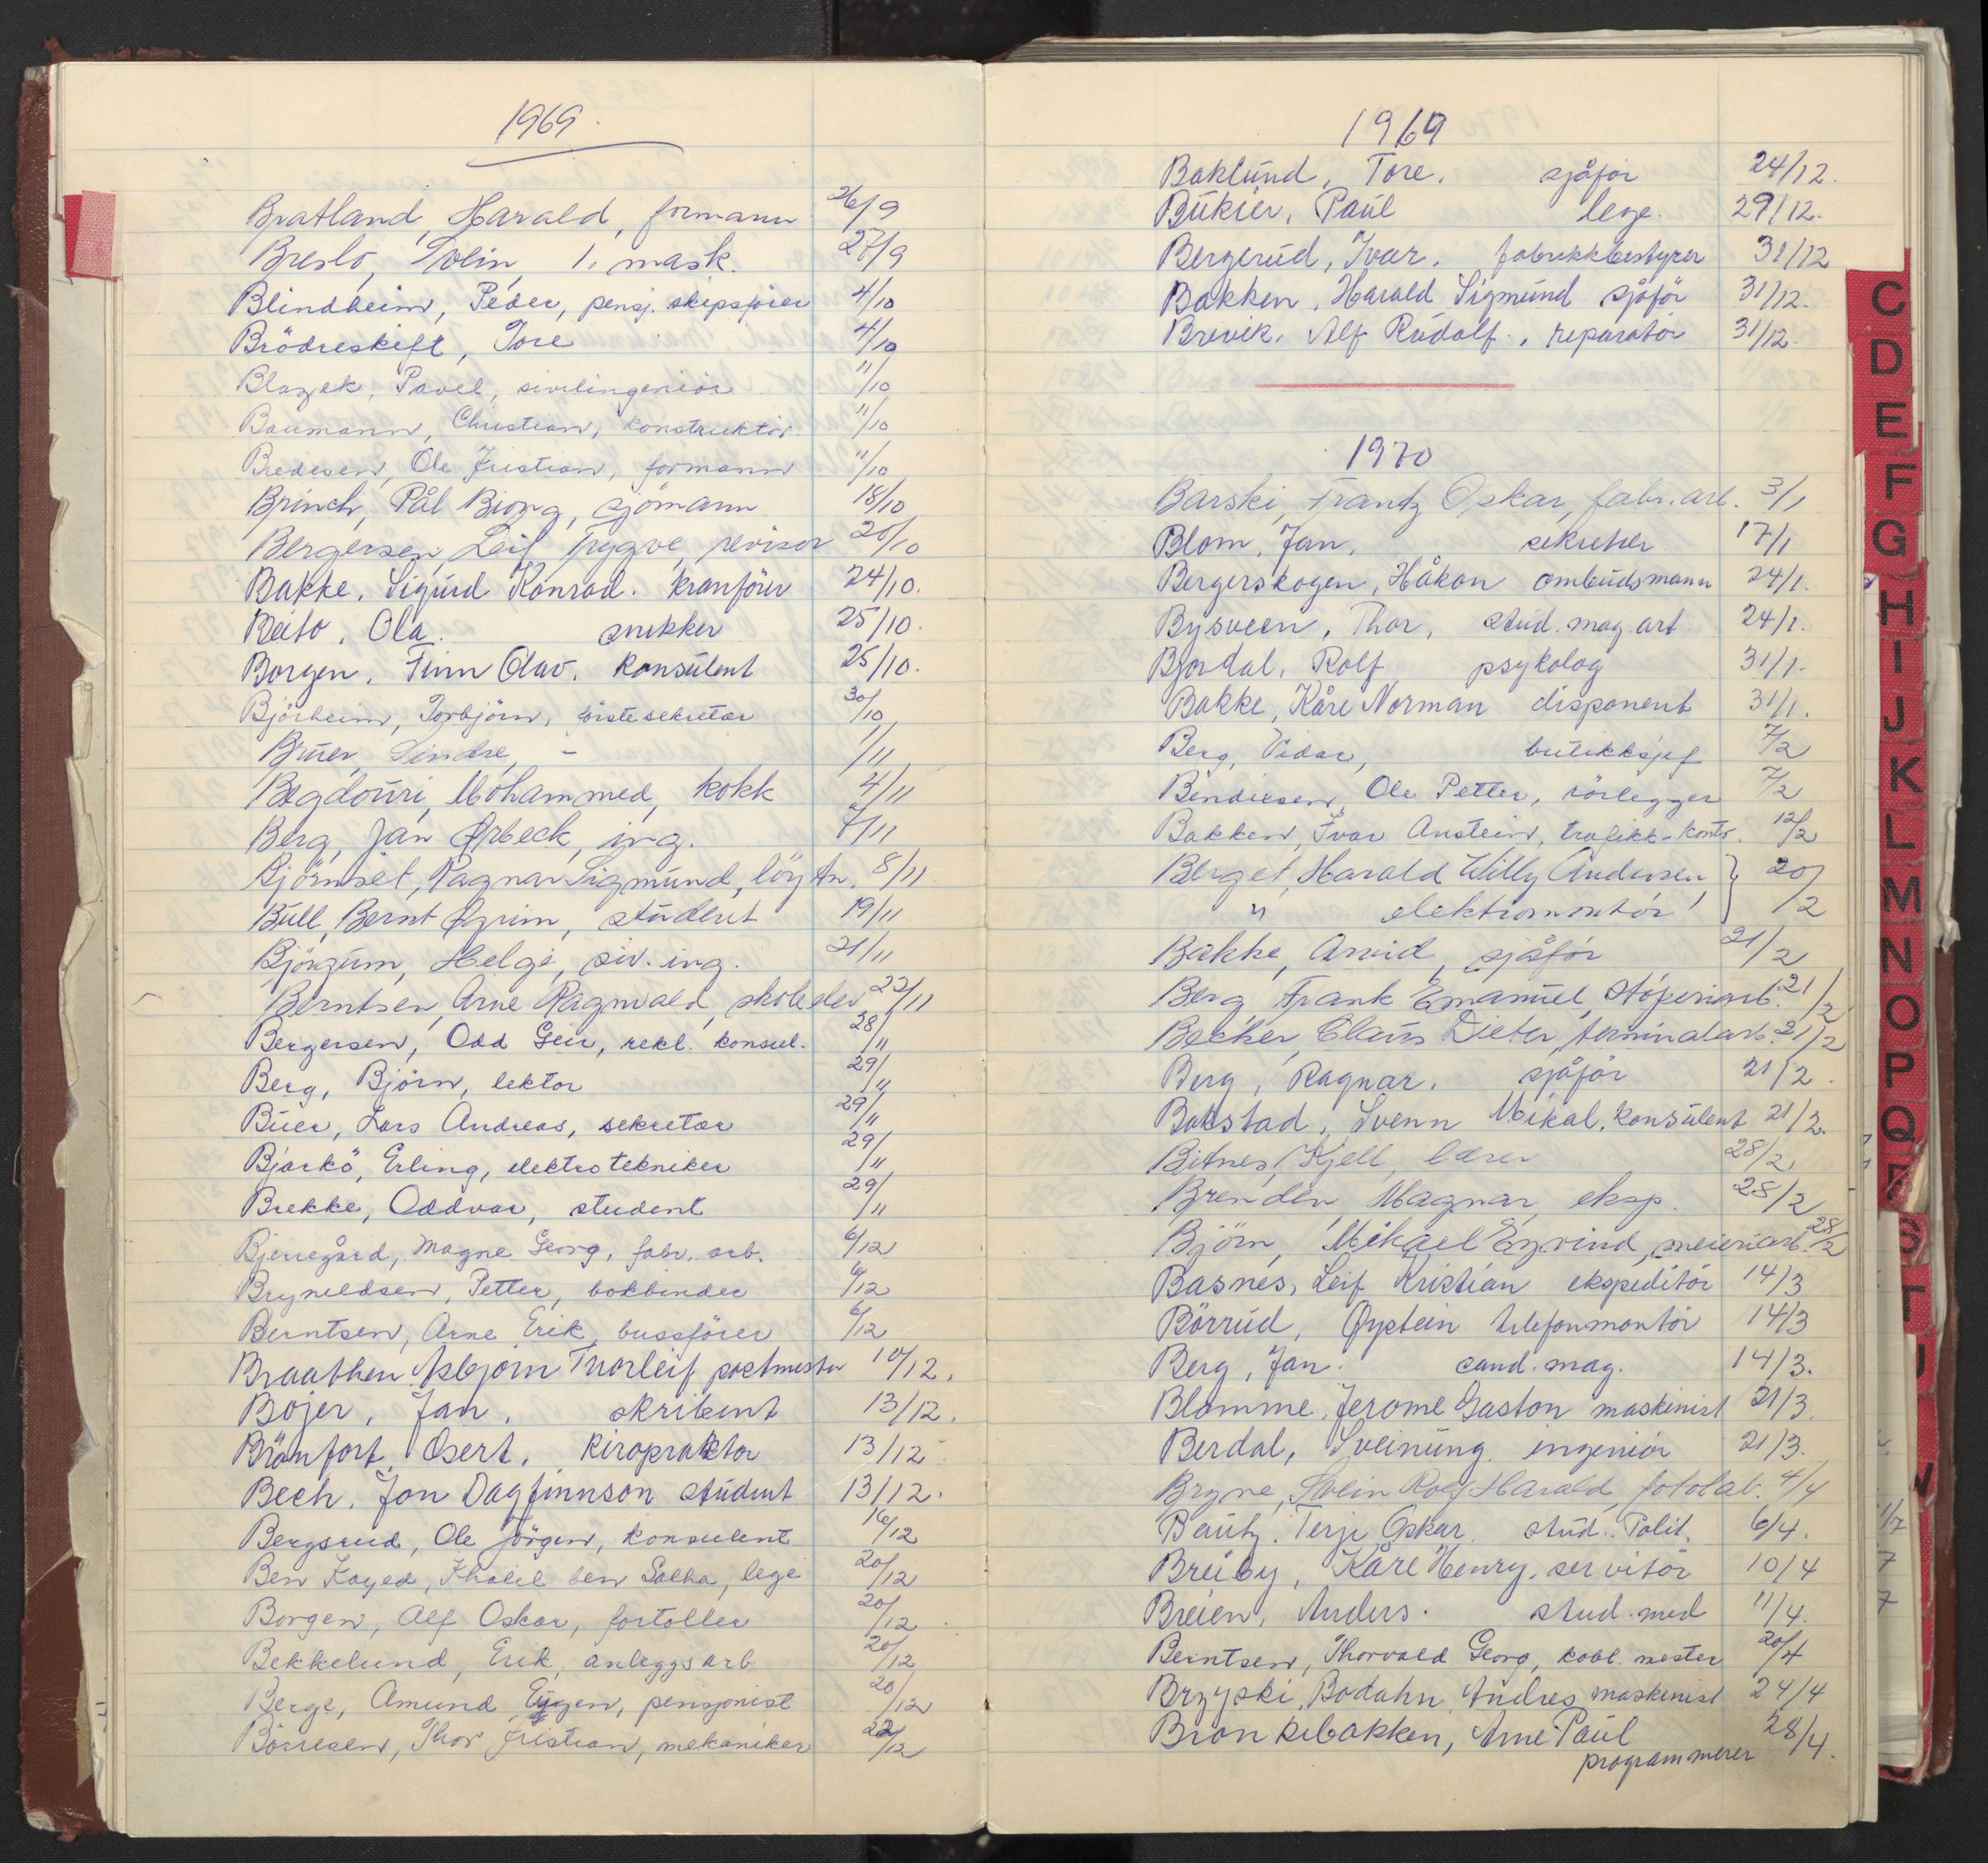 1969
Bratland, Harald, formann 26/9
Breslo, Svein, 1. mask. 27/9
Blindheim, Peder, pensj. skipsfører 4/10
Brödreskift, Tore 4/10
Blazek, Pavel, sivilingeniör 11/10
Baumann, Christian, konstruktör 11/10
Bredesen, Ole Kristian, formann 11/10
Brinch, Pål Biong, sjömann 18/10
Bergersen, Leif Trygve, revisor 20/10
Bakke, Sigurd Konrad. kranförer 24/10.
Beito, Ola. snekker 25/10.
Borgen, Finn Olav. Konsulent 25/10.
Björheim, Torbjörn, förstesekretær 30/10
Bruer, Sindre, - 1/11
Begdouri, Mohammed, kokk 4/11
Berg, Jan Ørbeck, ing. 7/11
Björnset, Ragnar Sigmund, löytn. 8/11
Bull, Bernt Ogrim, student 19/11
Björgum, Helge, siv. ing. 21/11
Berntsen, Arne Ragnvald, skoleelev 22/11
Bergersen, Odd Geir, rekl. konsul. 28/11
Berg, Björn, lektor 29/11
Buer, Lars Andreas, sekretær 29/11
Bjarkö, Erling, elektrotekniker 29/11
Brekke, Oddvar, student 29/11
Bjerregård, Magne Georg, fabr. arb. 6/12
Bryneldsen, Petter, bokbinder 6/12
Berntsen, Arne Erik, bussförer 6/12
Braathen Asbjørn Thorleif postmester 10/12.
Bojer, Jan. skribent 13/12.
Brönfort, Osert. Kiropraktor 13/12
Bech, Jon Dagfinnson student 13/12.
Bergsrud, Ole Jörgen, konsulent 16/12
Ben Zayed, Khalil ben Salha, lege 20/12
Borgen, Alf Oskar, fortoller 20/12
Bekkelund, Erik, anleggsarb 20/12
Berge, Amund Eggen, pensjonist 20/12
Börresen, Thor Kristian, mekaniker 22/12
1969
Baklund, Tore. sjåfør 24/12.
Bukier, Paul lege. 29/12.
Bergerud, Ivar. fabrikkbestyrer 31/12
Bakken, Harald Sigmund sjåför 31/12.
Brevik, Alf Rudolf., reparatör 31/12.
1970
Barski, Frantz Oskar, fabr.arb. 3/1
Blom, Jan, sekretær 17/1
Bergerskogen, Håkon ombudsmann 24/1.
Bysveen, Thor, stud. mag. art 24/1.
Bjordal, Rolf psykolog 31/1.
Bakke, Kåre Norman disponent 31/1.
Berg, Vidar, butikksjef 7/2
Bendiksen, Ole Petter, rörlegger 7/2
Bakken, Ivar Anstein, trafikk-kontr. 12/2
Berget, Harald Willy Andersen, } 20/2
" elektromontör
Bakke, Arvid, sjåför 21/2
Berg, Frank Emanuel, støperiarb. 21/2
Becher, Claus Dieter, terminalarb. 21/2
Berg, Ragnar. sjåför 21/2.
Bakstad, Svenn Mikal. Konsulent 21/2.
Bitnes, Kjell, lærer 28/2
Brenden, Magnar, eksp. 28/2
Björn, Mikael Eyvind, meieriarb. 28/2
Basnes, Leif Kristian ekspeditör 14/3
Börrud, Øystein telefonmontör 14/3
Berg, Jan. cand. mag. 14/3.
Blomme, Jerome Gaston maskinist 21/3.
Berdal, Sveinung. ingeniör 21/3.
Bryne, Svein Rolf Harald, fotolab. 4/4
Bautz. Terje Oskar. stud. Polit. 6/4.
Breiby, Kåre Henry, servitör 10/4
Breien, Anders. stud. med 11/4.
Berntsen, Thorvald Georg, kobl. mester 20/4
Brzyski, Bodahn, Andres maskinist 24/4
Bronkebakken, Arne Paul 28/4.
programmerer
C
D
E
F
G
H
I
J
K
L
M
N
O
P
Q
R
S
T